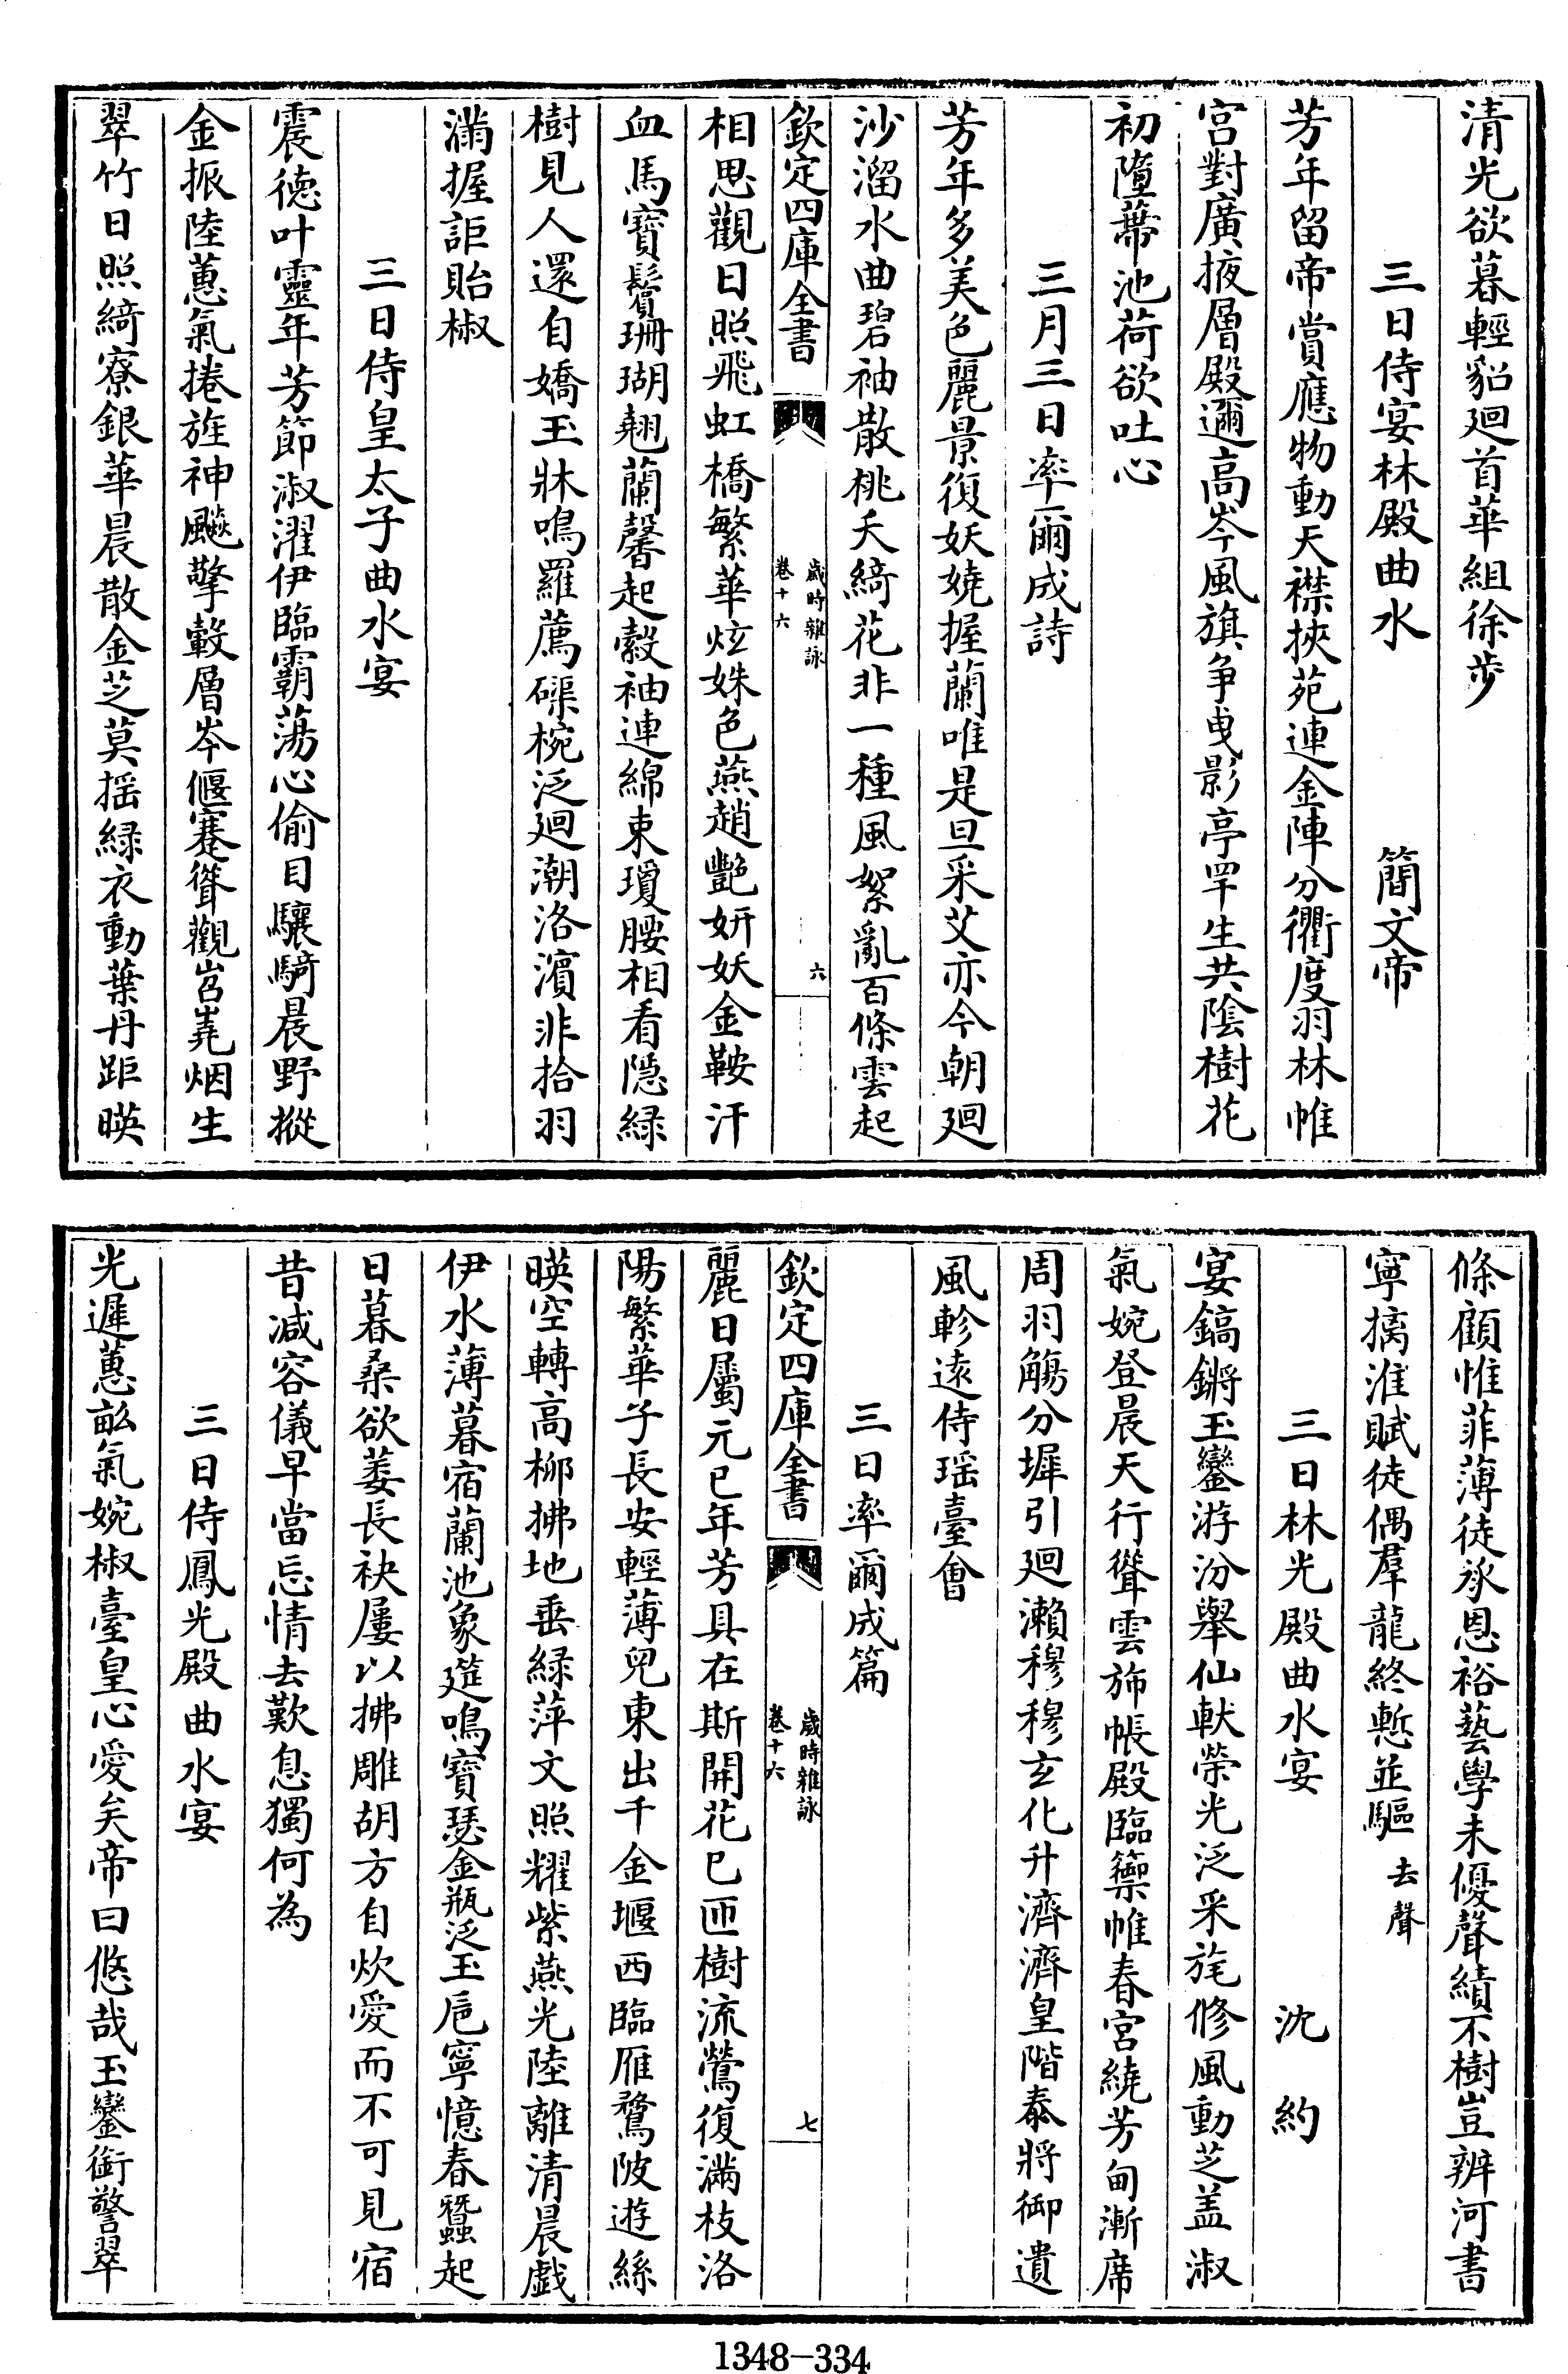 清光欲暮輕貂廻首華組徐步
三日侍宴林殿曲水 簡文帝
芳年留帝賞應物動天襟挾苑連金陣分衢度羽林帷
宮對廣掖層殿邇高岑風旗争曳影亭罕生共陰樹花
初墮蔕池荷欲吐心
三月三日率爾成詩
芳年多美色麗景復妖嬈握蘭唯是旦采艾亦今朝廻
沙溜水曲碧袖散桃夭綺花非一種風絮亂百條雲起
欽定四庫全書 歲時雜詠 卷十六 六
相思觀日照飛虹橋繁華炫姝色燕趙艷妍妖金鞍汗
血馬寶鬢珊瑚翹蘭馨起縠袖連綿束瓊腰相看隱緑
樹見人還自嬌玉牀鳴羅薦磲椀泛廻潮洛濱非拾羽
滿握詎貽椒
三日侍皇太子曲水宴
震德叶靈年芳節淑濯伊臨霸蕩心偷目驤騎晨野摐
金振陸蕙氣捲旌神飈擎轂層岑偃蹇聳觀岧嶤烟生
翠竹日照綺寮銀華晨散金芝莫摇緑衣動葉丹距暎
條顧惟菲薄徒承恩裕藝學未優聲績不樹豈辨河書
寧摛淮賦徒偶羣龍終慙並驅去聲
三日林光殿曲水宴 沈約
宴鎬鏘玉鑾游汾舉仙軑榮光泛采旄修風動芝盖淑
氣婉登晨天行聳雲斾帳殿臨籞帷春宫繞芳甸漸席
周羽觴分墀引廻瀨穆穆玄化升濟濟皇階泰將御遺
風軫遠侍瑶臺會
三日率爾成篇
欽定四庫全書 歲時雜詠 卷十六 七
麗日屬元巳年芳具在斯開花巳匝樹流鶯復滿枝洛
陽繁華子長安輕薄兒東出千金堰西臨雁鶩陂遊絲
暎空轉高柳拂地垂緑萍文照耀紫燕光陸離清晨戲
伊水薄暮宿蘭池象筵鳴寶瑟金瓶泛玉巵寧憶春蠶起
日暮桑欲萎長袂屢以拂雕胡方自炊愛而不可見宿
昔减容儀早當忘情去歎息獨何為
三日侍鳳光殿曲水宴
光遲蕙畝氣婉椒臺皇心愛矣帝曰悠哉玉鑾銜警翠
1348-334